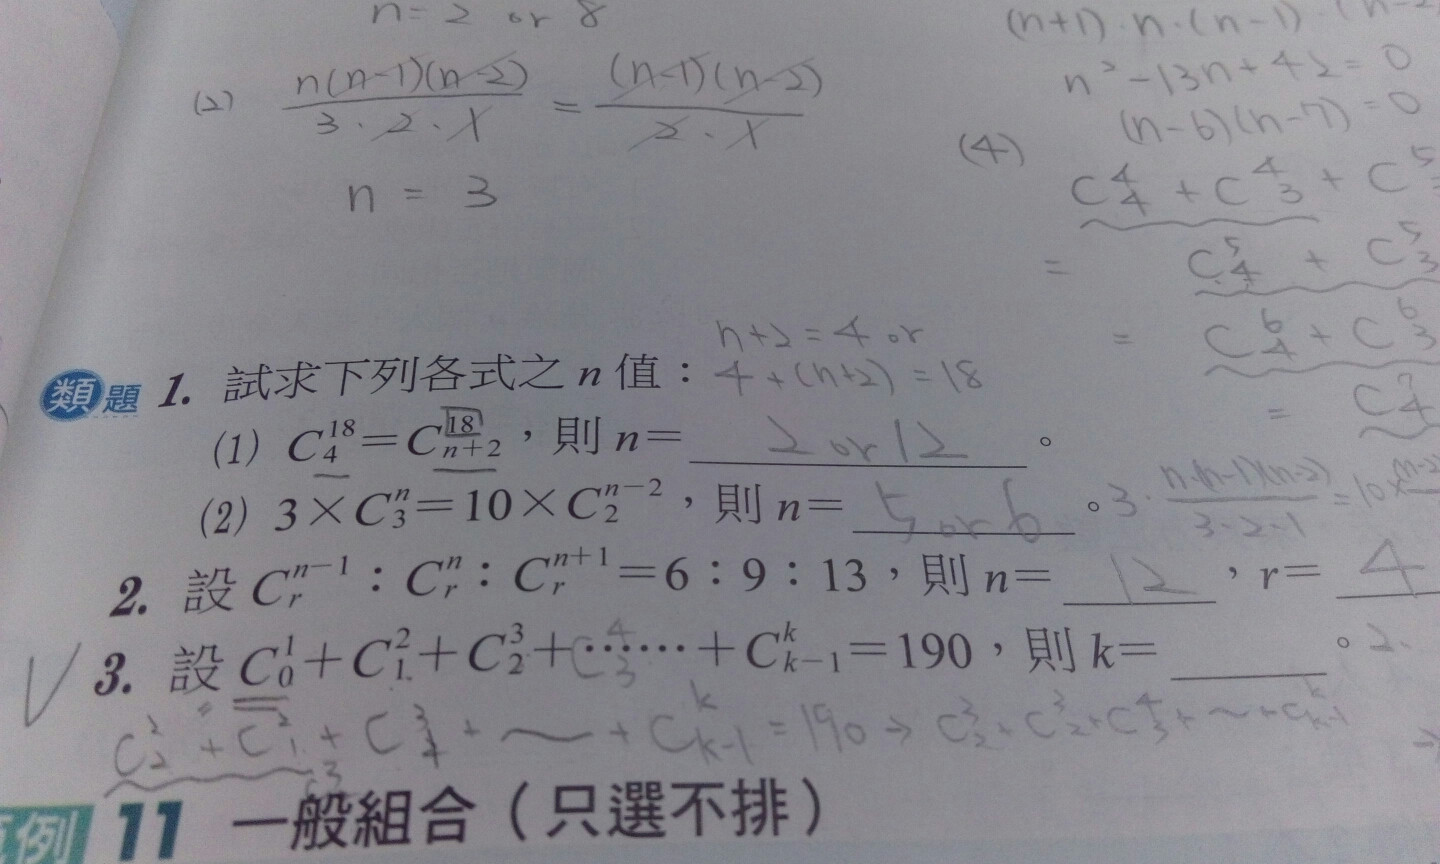 n = 2 or 8
(2) n(n-1)(n-2) / 3·2·1 = (n-1)(n-2) / 2·1
n = 3
(n+1)·n·(n-1)·(n-2
n²-13n+42=0
(n-6)(n-7)=0
(4) C⁴₄ + C⁴₃ + C⁵
= C⁵₄ + C⁵₃
= C⁶₄ + C⁶₃
= C⁷₄
n+2=4 or
類題 1. 試求下列各式之 n 值： 4+(n+2)=18
(1) C¹⁸₄=C¹⁸ₙ₊₂，則 n= 2 or 12 。
(2) 3×Cⁿ₃=10×Cⁿ⁻²₂，則 n= 5 or 6 。 3· n·(n-1)(n-2) / 3·2·1 = 10×
2. 設 Cⁿ⁻¹ᵣ：Cⁿᵣ：Cⁿ⁺¹ᵣ=6：9：13，則 n= 12 ，r= 4
✓ 3. 設 C¹₀+C²₁+C³₂+……+Cᵏₖ₋₁=190，則 k= 。 2.
C⁴₃
C²₂ + C²₁ + C³ + ～ + Cᵏₖ₋₁ = 190 →
例 11 一般組合（只選不排）